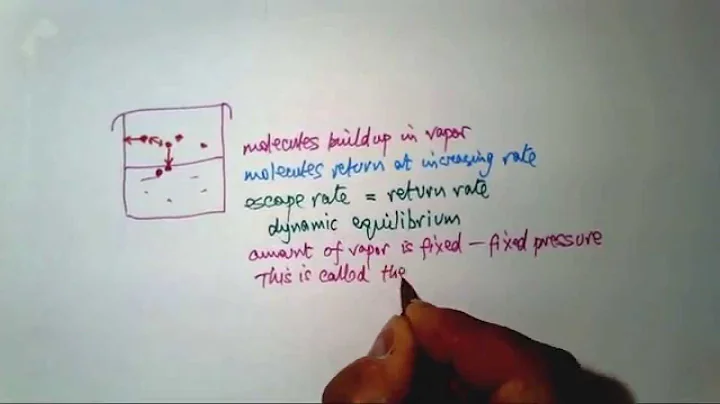 molecules build up in vapor
molecules return at increasing rate
escape rate = return rate
dynamic equilibrium
amount of vapor is fixed – fixed pressure
This is called the